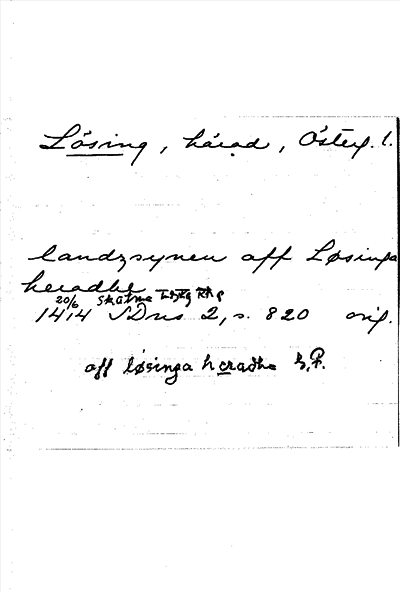 Lösing, härad, Österg. l.
landzsynen aff Løsinga
heradhe
20/6 skatme
1414 SDns 2, s. 820 orig.
aff løsinga heradhe